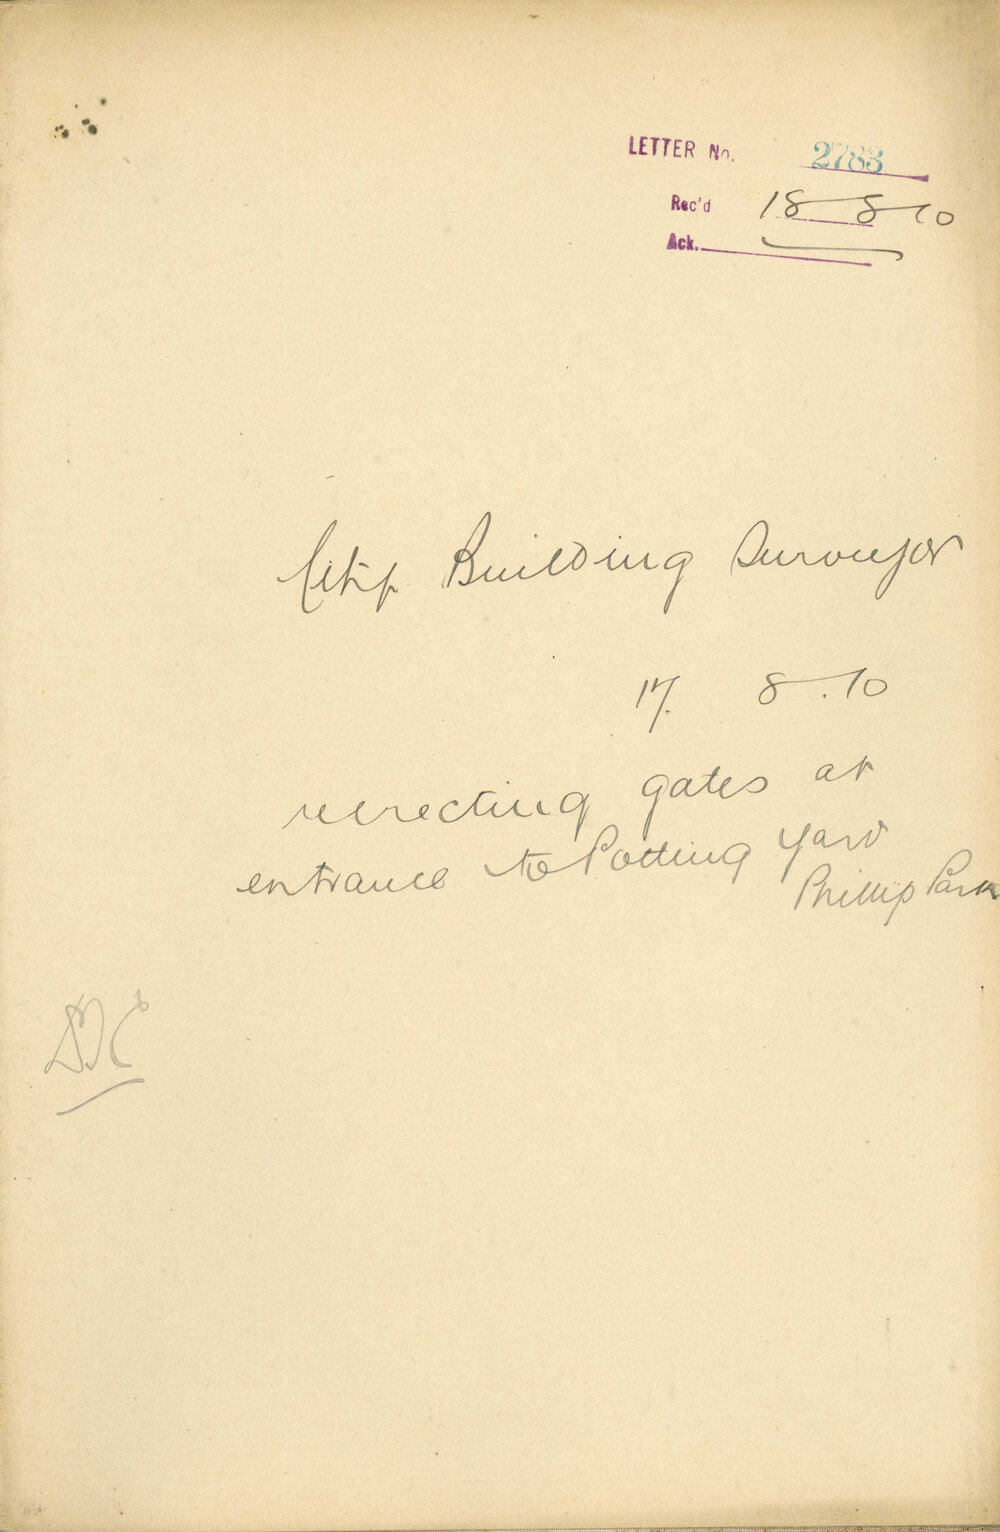 LETTER No. 2783
Rec'd 18 8 10
Ack.
City Building Surveyor
17. 8.10
reerecting gates at
entrance to Potting Yard
Phillip Park